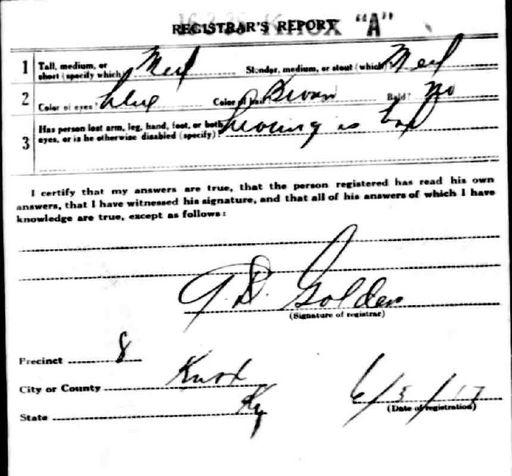 REGISTRAR'S REPORT KNOX "A"
1 Tall, medium, or short (specify which) Med Slender, medium, or stout (which) Med
2 Color of eyes? blue Color of hair Brown Bald? No
3 Has person lost arm, leg, hand, foot, or both eyes, or is he otherwise disabled (specify)? hearing is bad
I certify that my answers are true, that the person registered has read his own
answers, that I have witnessed his signature, and that all of his answers of which I have
knowledge are true, except as follows:
Golden
(Signature of registrar)
Precinct 8
City or County Knox
State Ky
6/5/17
(Date of registration)